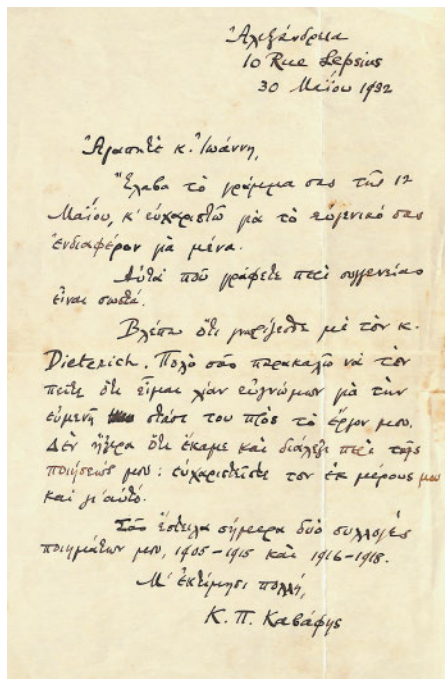 Ἀλεξάνδρεια
10 Rue Lepsius
30 Μαΐου 1932
Ἀγαπητὲ κ. Ἰωάννη,
Ἔλαβα τὸ γράμμα σας τῆς 12
Μαΐου, κ' εὐχαριστῶ γιὰ τὸ εὐγενικό σας
ἐνδιαφέρον γιὰ μένα.
Αὐτὰ ποὺ γράφετε περὶ συγγενείας
εἶναι σωστά.
Βλέπω ὅτι γνωρίζεσθε μὲ τὸν κ.
Dieterich. Πολὺ σᾶς παρακαλῶ νὰ τὸν
πεῖτε ὅτι εἶμαι λίαν εὐγνώμων γιὰ τὴν
εὐμενῆ στάσι του πρὸς τὸ ἔργον μου.
Δὲν ἤξερα ὅτι ἔκαμε καὶ διάλεξι περὶ τῆς
ποιήσεώς μου: εὐχαριστεῖστε τον ἐκ μέρους μου
καὶ γι' αὐτό.
Σᾶς ἔστειλα σήμερα δυὸ συλλογὲς
ποιημάτων μου, 1905-1915 καὶ 1916-1918.
Μ' ἐκτίμησι πολλή,
Κ. Π. Καβάφης